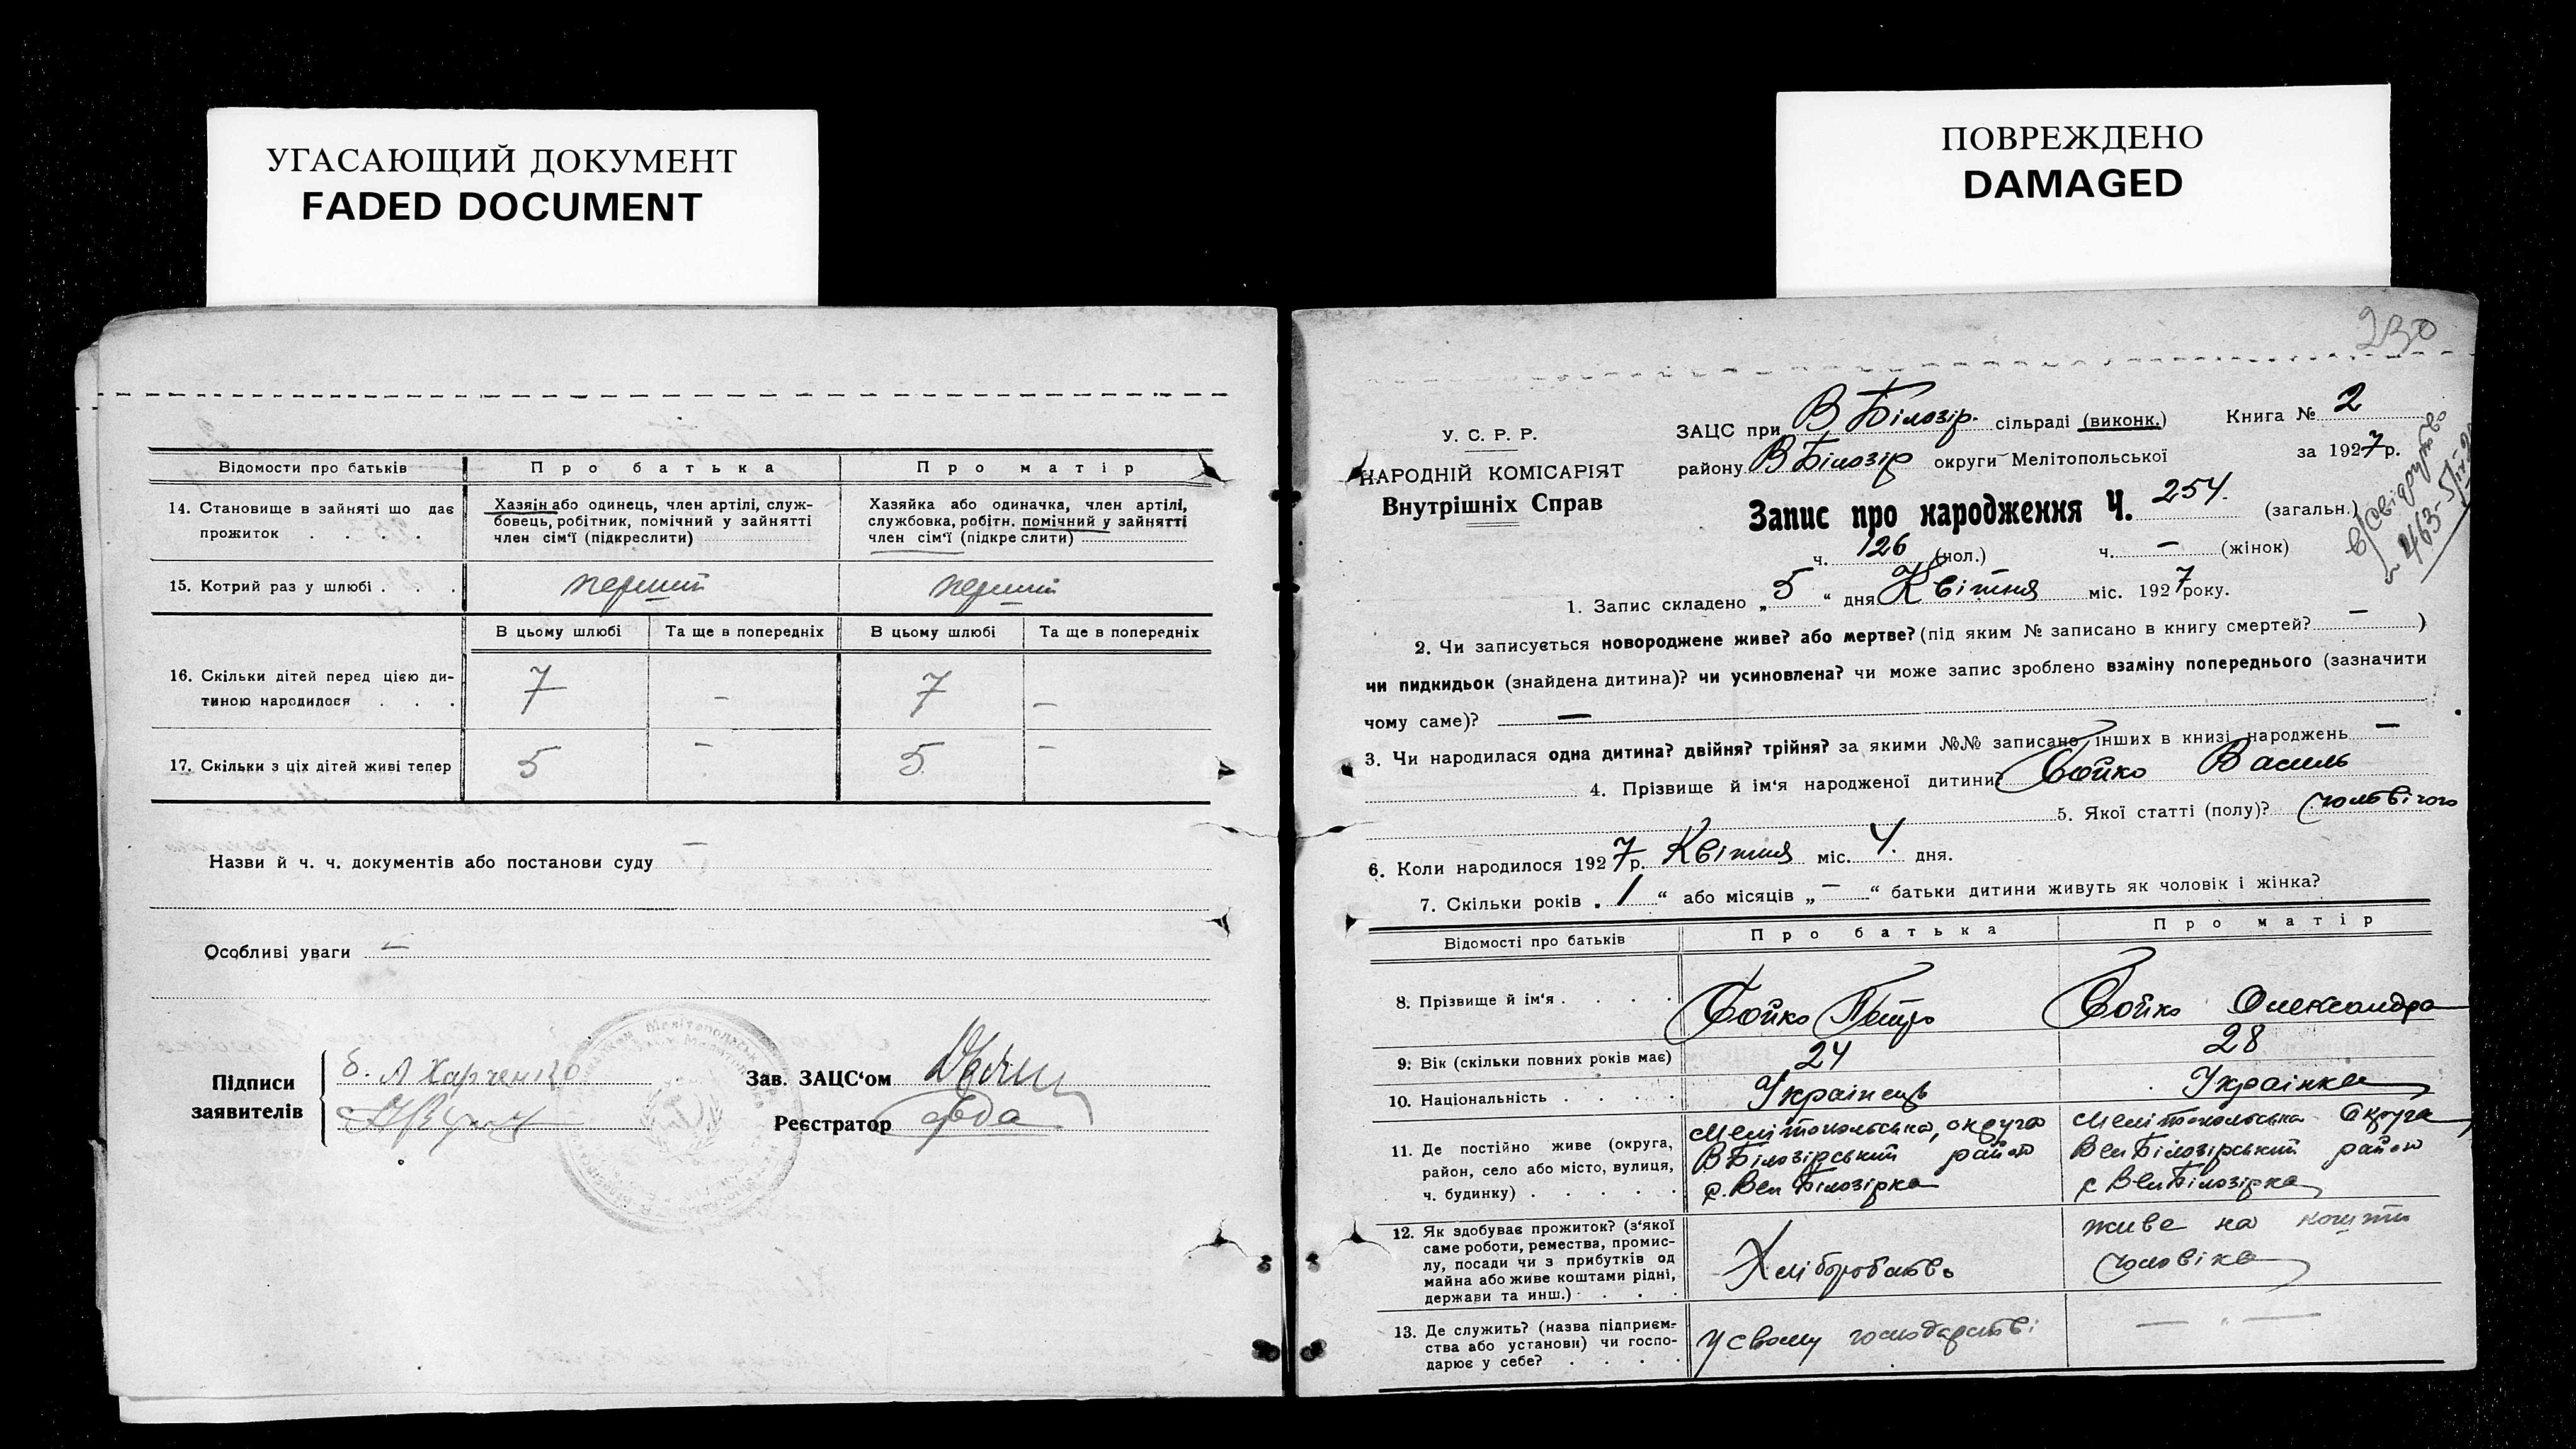 УГАСАЮЩИЙ ДОКУМЕНТ
FADED DOCUMENT
ПОВРЕЖДЕНО
DAMAGED
Відомости про батьків
Про батька
Про матір
14. Становище в зайняті що дає прожиток . . . .
Хазяін або одинець, член артілі, служ-
бовець, робітник, помічний у зайнятті
член сім'ї (підкреслити)
Хазяйка або одиначка, член артілі,
службовка, робітн. помічний у зайнятті
член сім'ї (підкреслити)
15. Котрий раз у шлюбі . . .
перший
перший
В цьому шлюбі
Та ще в попередніх
В цьому шлюбі
Та ще в попередніх
16. Скільки дітей перед цією ди-
тиною народилося . . .
7 – 7 –
17. Скільки з ціх дітей живі тепер
5 – 5 –
Назви й ч. ч. документів або постанови суду –
Особливі уваги –
Підписи
заявителів
б. Л Харченко
Зав. ЗАЦС'ом
Реєстратор
230
У. С. Р. Р.
НАРОДНІЙ КОМІСАРІЯТ
Внутрішніх Справ
ЗАЦС при В Білозір. сільраді (виконк.)
Книга № 2
району В Білозір округи Мелітопольської
за 1927р.
Запис про народження Ч. 254. (загальн.)
463-
ч. 126 (чол.) ч. – (жінок)
1. Запис складено „5“ дня Квітня міс. 1927року.
2. Чи записується новороджене живе? або мертве? (під яким № записано в книгу смертей? – )
чи пидкидьок (знайдена дитина)? чи усиновлена? чи може запис зроблено взаміну попереднього (зазначити
чому саме)? –
3. Чи народилася одна дитина? двійня? трійня? за якими №№ записано інших в книзі народжень –
4. Прізвище й ім'я народженої дитини? Бойко Василь
5. Якої статті (полу)? чоловічого
6. Коли народилося 1927р. Квітня міс. 4. дня.
7. Скільки років „1“ або місяців „–“ батьки дитини живуть як чоловік і жінка?
Відомості про батьків
Про батька
Про матір
8. Прізвище й ім'я . . . .
Бойко Петро
Бойко Олександра
9. Вік (скільки повних років має)
24
28
10. Національність . . . .
Українець
Українка
11. Де постійно живе (округа,
район, село або місто, вулиця,
ч. будинку) . . . . .
Мелітопольська, округа
В Білозірський район
с. Вел Білозірка
Мелітопольська Округа
Вел Білозірський район
с Вел Білозірка
12. Як здобуває прожиток? (з'якої
саме роботи, ремества, промис-
лу, посади чи з прибутків од
майна або живе коштами рідні,
держави та инш.) . . .
Хліборобство
живе на кошти
чоловіка
13. Де служить? (назва підприєм-
ства або установи) чи госпо-
дарює у себе? . . . .
у свому господарстві
— „ —